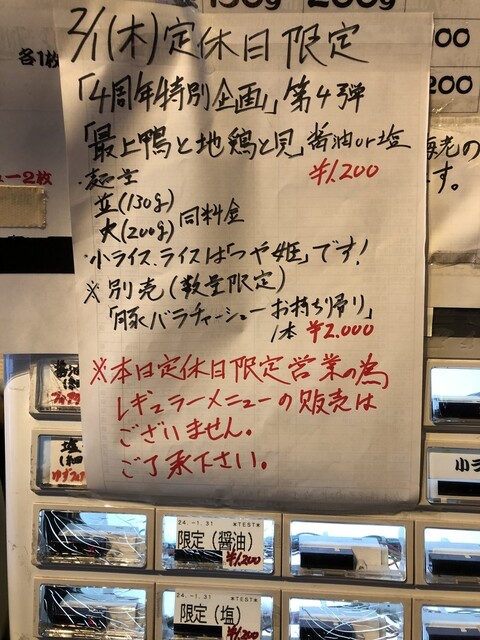 130g 200g
各1枚
2/1(木)定休日限定
「4周年特別企画」第4弾
「最上鴨と地鶏と貝」醤油or塩
¥1,200
・麺量
並(130g)
大(200g)同料金
・小ライス、ライスは「つや姫」です!
※別売(数量限定)
「豚バラチャーシューお持ち帰り」
1本 ¥2.000
※本日定休日限定営業の為
レギュラーメニューの販売は
ございません。
ご了承下さい。
00
200
す。
ー2枚
塩
24.-1.31 *TEST*
限定(醤油)
¥1,200
24.-1.31 *TEST*
限定(塩)
¥1,200